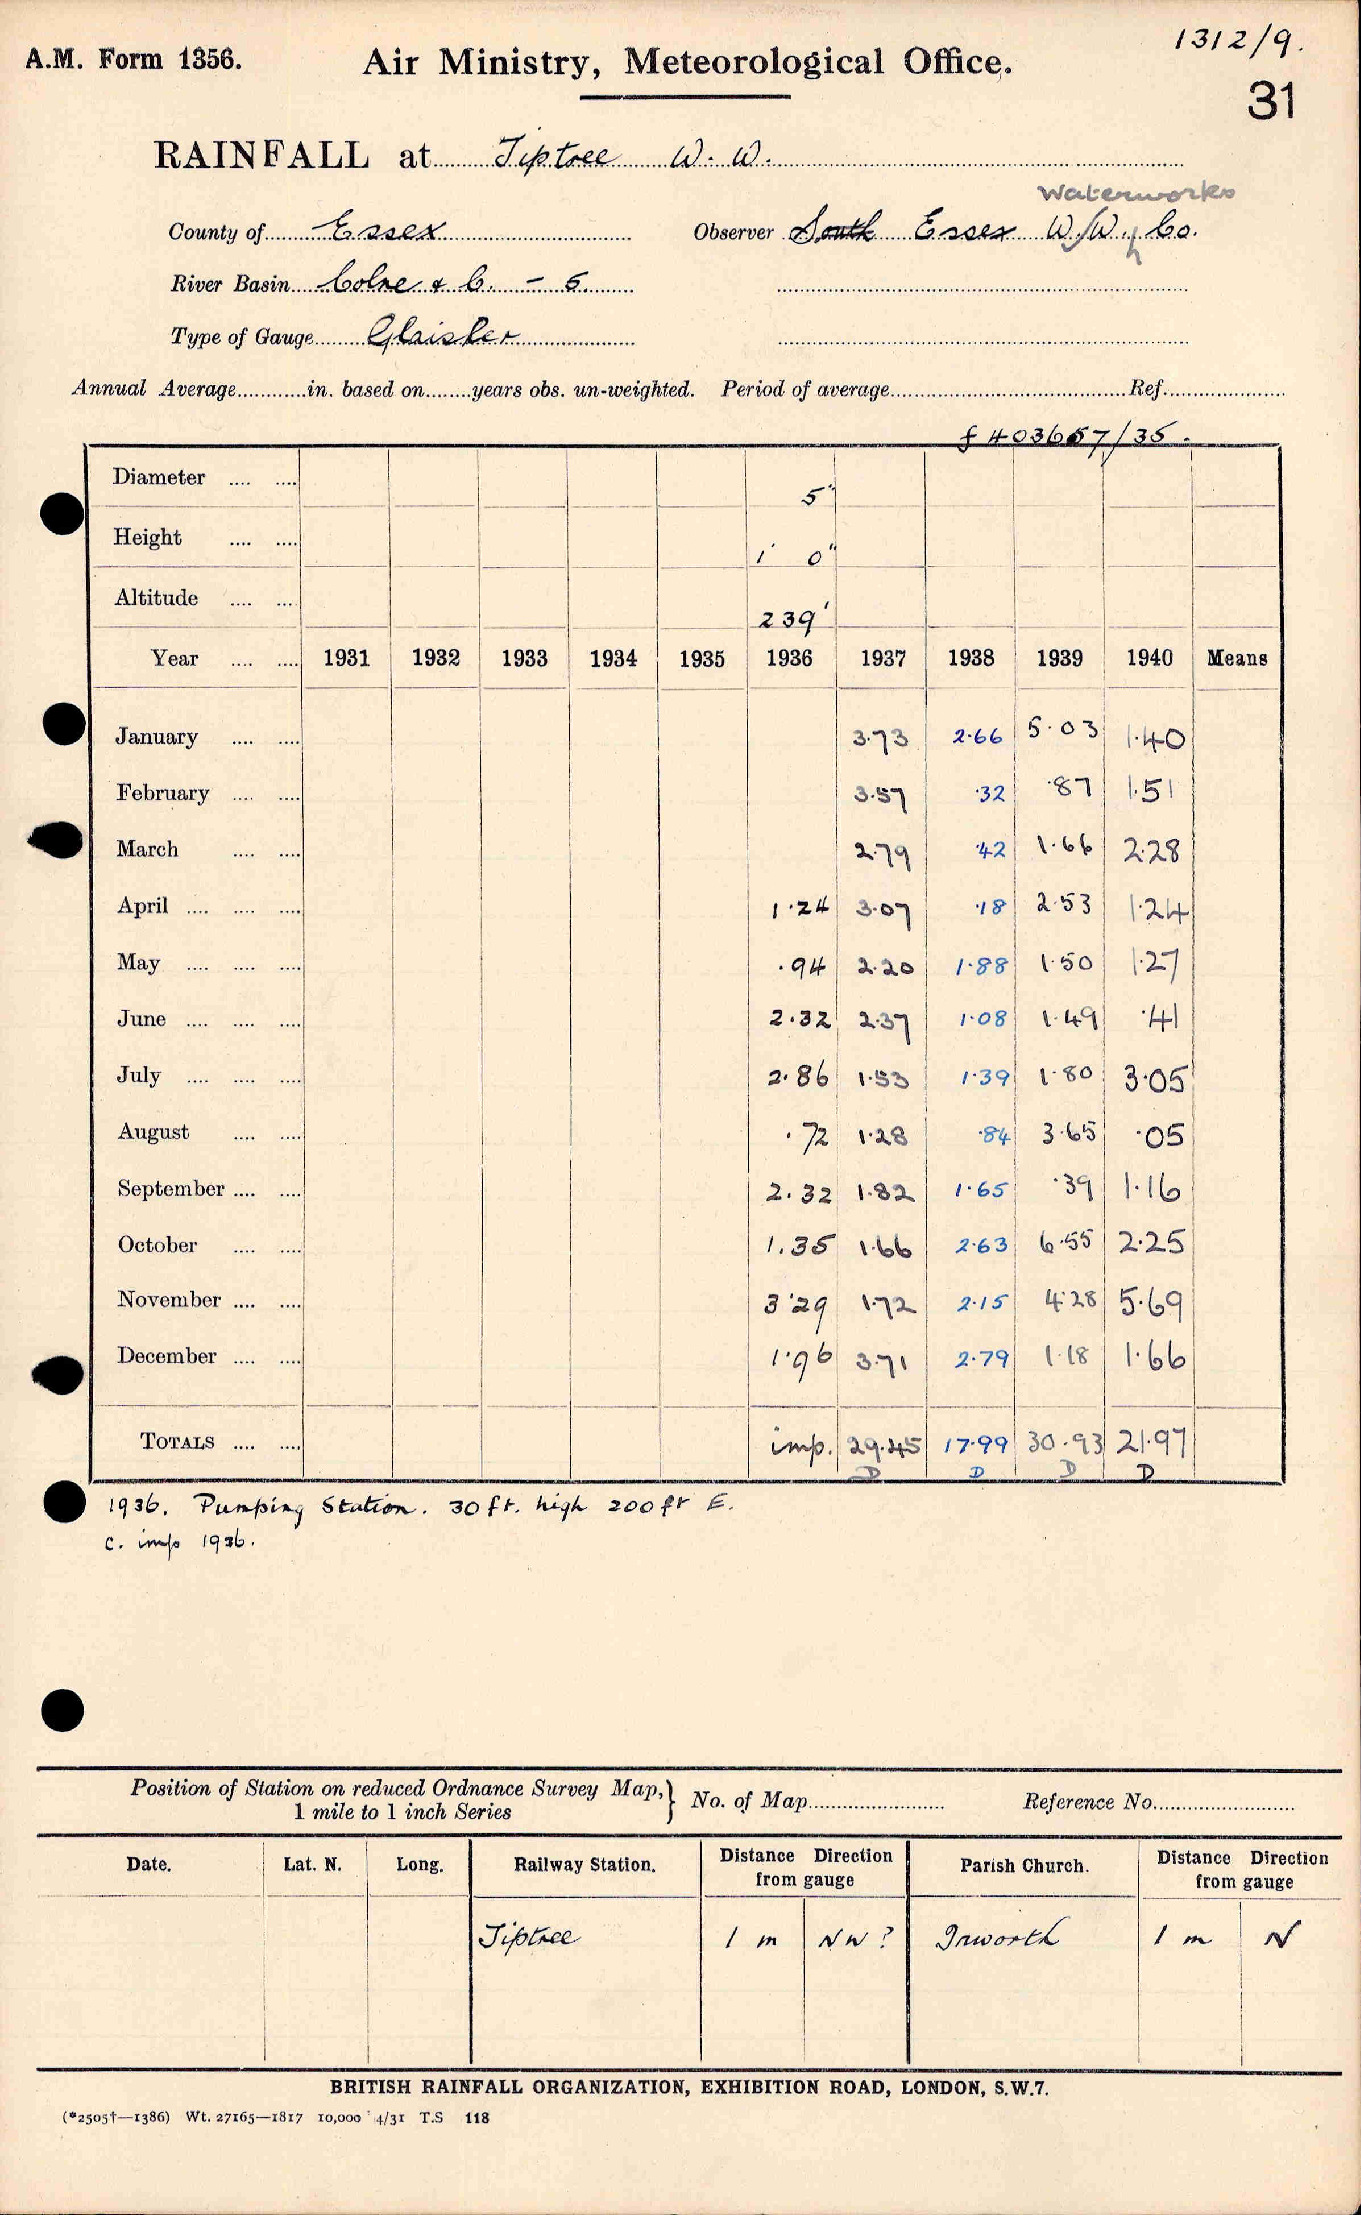 1312/9.
A.M. Form 1356. Air Ministry, Meteorological Office.
31
RAINFALL at Tiptree W. W.
Waterworks
County of Essex Observer South Essex W. W. Co.
River Basin Colne & C. - 5
Type of Gauge Glaisher
Annual Average in. based on years obs. un-weighted. Period of average Ref.
f 403657/35.
Diameter .... .... 5"
Height .... .... 1' 0"
Altitude .... .... 239'
Year .... .... 1931 1932 1933 1934 1935 1936 1937 1938 1939 1940 Means
January .... .... 3.73 2.66 5.03 1.40
February .... .... 3.57 .32 .87 1.51
March .... .... 2.79 .42 1.66 2.28
April .... .... .... 1.24 3.07 .18 2.53 1.24
May .... .... .... .94 2.20 1.88 1.50 1.27
June .... .... .... 2.32 2.37 1.08 1.49 .41
July .... .... .... 2.86 1.53 1.39 1.80 3.05
August .... .... .72 1.28 .84 3.65 .05
September .... .... 2.32 1.82 1.65 .39 1.16
October .... .... 1.35 1.66 2.63 6.55 2.25
November .... .... 3.29 1.72 2.15 4.28 5.69
December .... .... 1.96 3.71 2.79 1.18 1.66
TOTALS .... .... imp. 29.45 17.99 30.93 21.97
D D D D
1936. Pumping Station. 30 ft. high 200 ft E.
c. imp 1936.
Position of Station on reduced Ordnance Survey Map, } No. of Map Reference No.
1 mile to 1 inch Series
Date. Lat. N. Long. Railway Station. Distance Direction from gauge Parish Church. Distance Direction from gauge
Tiptree 1 m NW? Inworth 1 m N
BRITISH RAINFALL ORGANIZATION, EXHIBITION ROAD, LONDON, S.W.7.
(*2505†—1386) Wt. 27165—1817 10,000 4/31 T.S 118